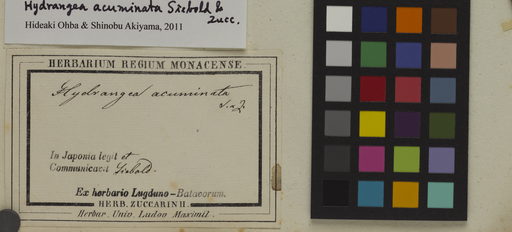 Hydrangea acuminata Siebold &
Zucc.
Hideaki Ohba & Shinobu Akiyama, 2011
HERBARIUM REGIUM MONACENSE.
Hydrangea acuminata
S. & Z.
In Japonia legit et
Communicavit Siebold.
Ex herbario Lugduno-Batavorum.
HERB. ZUCCARINII.
Herbar. Univ. Ludov. Maximil.